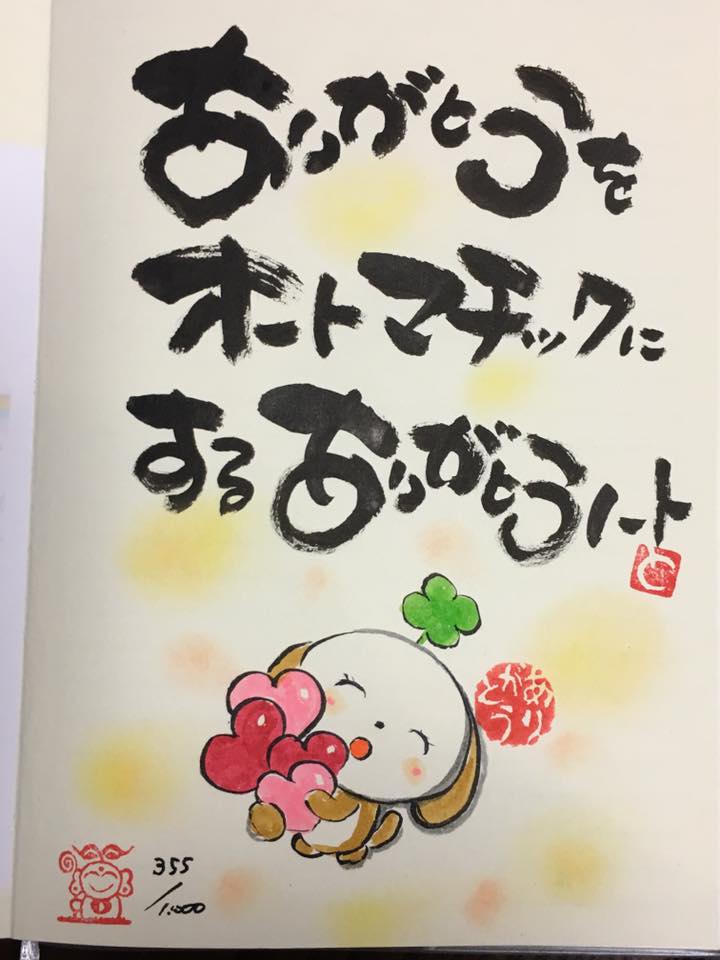 ありがとうを
オートマチックに
するありがとうノート
と
ありがとう
355
/1.000